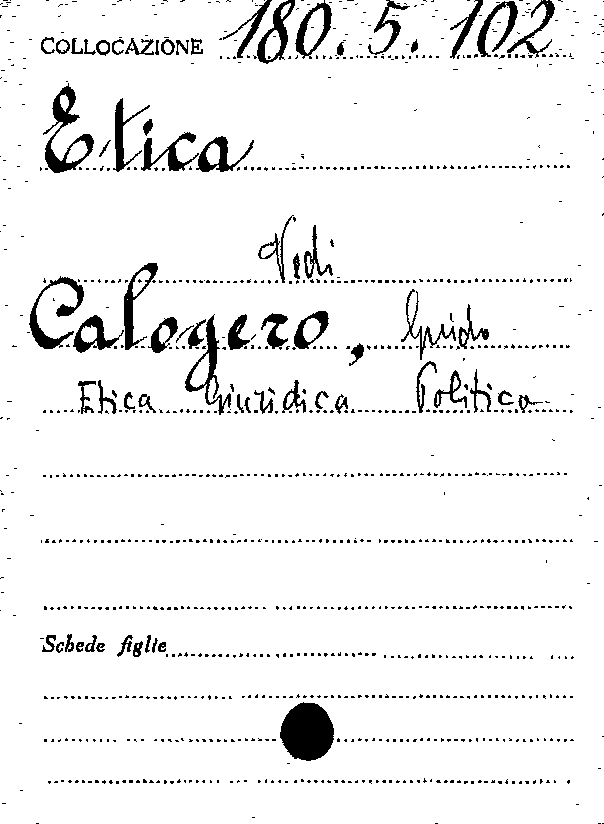 COLLOCAZIONE 180.5.102
Etica
Vedi
Calogero, Guido
Etica Giuridica Politica
Schede figlie